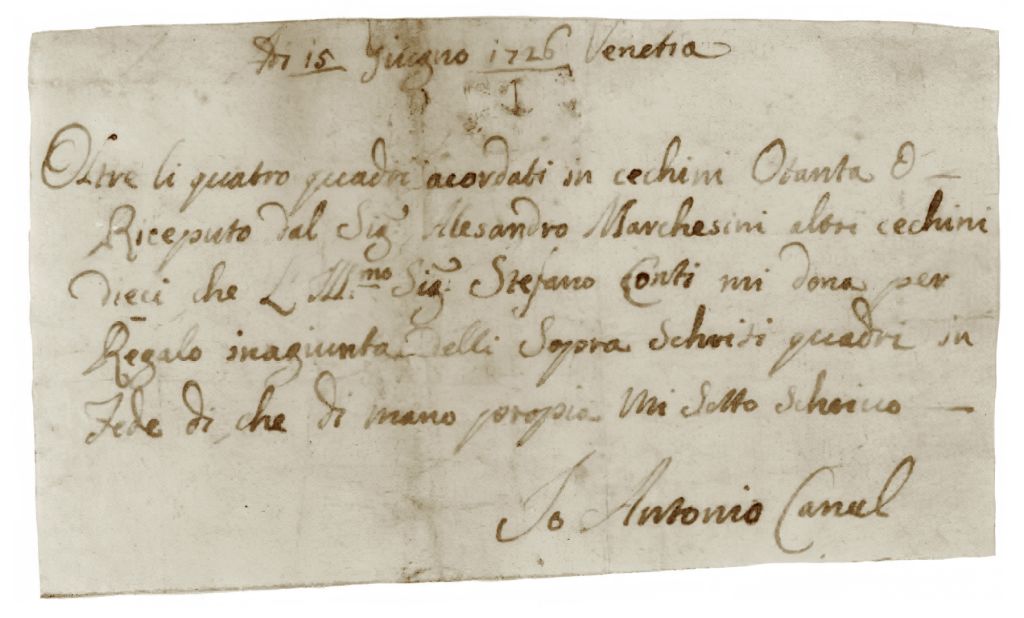 Di 15 Giugno 1726 Venetia
Oltre li quatro quadri acordati in cechini Otanta ò
Riceputo dal Sig.r Alesandro Marchesini altri cechini
dieci che L Ill.mo Sig.r Stefano Conti mi dona per
Regalo inagiunta delli Sopra Schriti quadri in
Fede di che di mano propia Mi Soto Schrivo
Io Antonio Canal